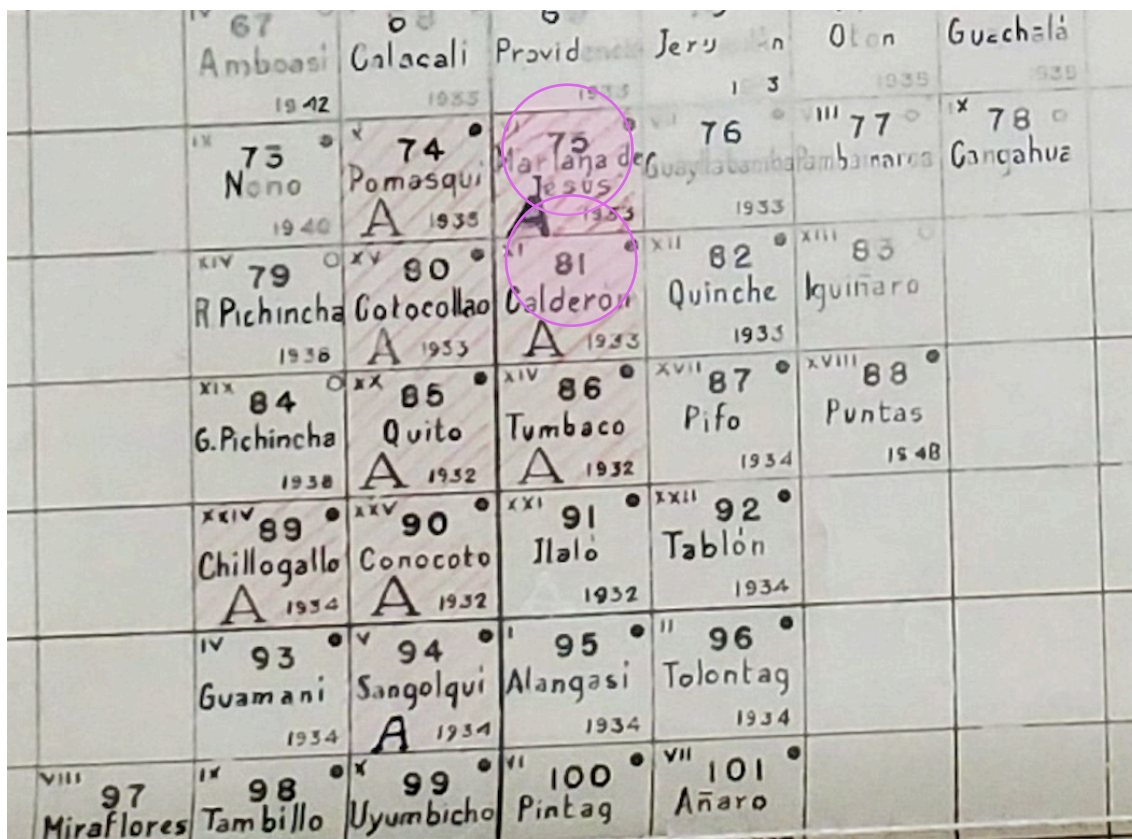 67
Amboasi
1942
Calacali
1933
1933
Oton
1935
Guachalá
1935
IX 73
Nono
1940
X 74
Pomasqui
A 1935
75
Mariana de
Jesus
A 1933
76
Guayllabamba
1933
VIII 77
Pambamarca
IX 78
Cangahua
XIV 79
R Pichincha
1938
XV 80
Cotocollao
A 1933
XI 81
Calderón
A 1933
XII 82
Quinche
1933
XIII 83
Iguiñaro
XIX 84
G. Pichincha
1938
XX 85
Quito
A 1932
XIV 86
Tumbaco
A 1932
XVII 87
Pifo
1934
XVIII 88
Puntas
1948
XXIV 89
Chillogallo
A 1934
XXV 90
Conocoto
A 1932
XXI 91
Ilaló
1932
XXII 92
Tablón
1934
IV 93
Guamani
1934
V 94
Sangolqui
A 1934
I 95
Alangasi
1934
II 96
Tolontag
1934
VIII 97
Miraflores
IX 98
Tambillo
X 99
Uyumbicho
VI 100
Pintag
VII 101
Añaro